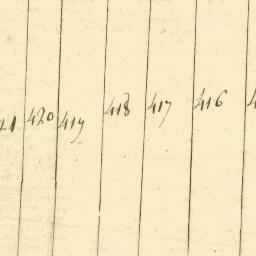 420 419 418 417 416